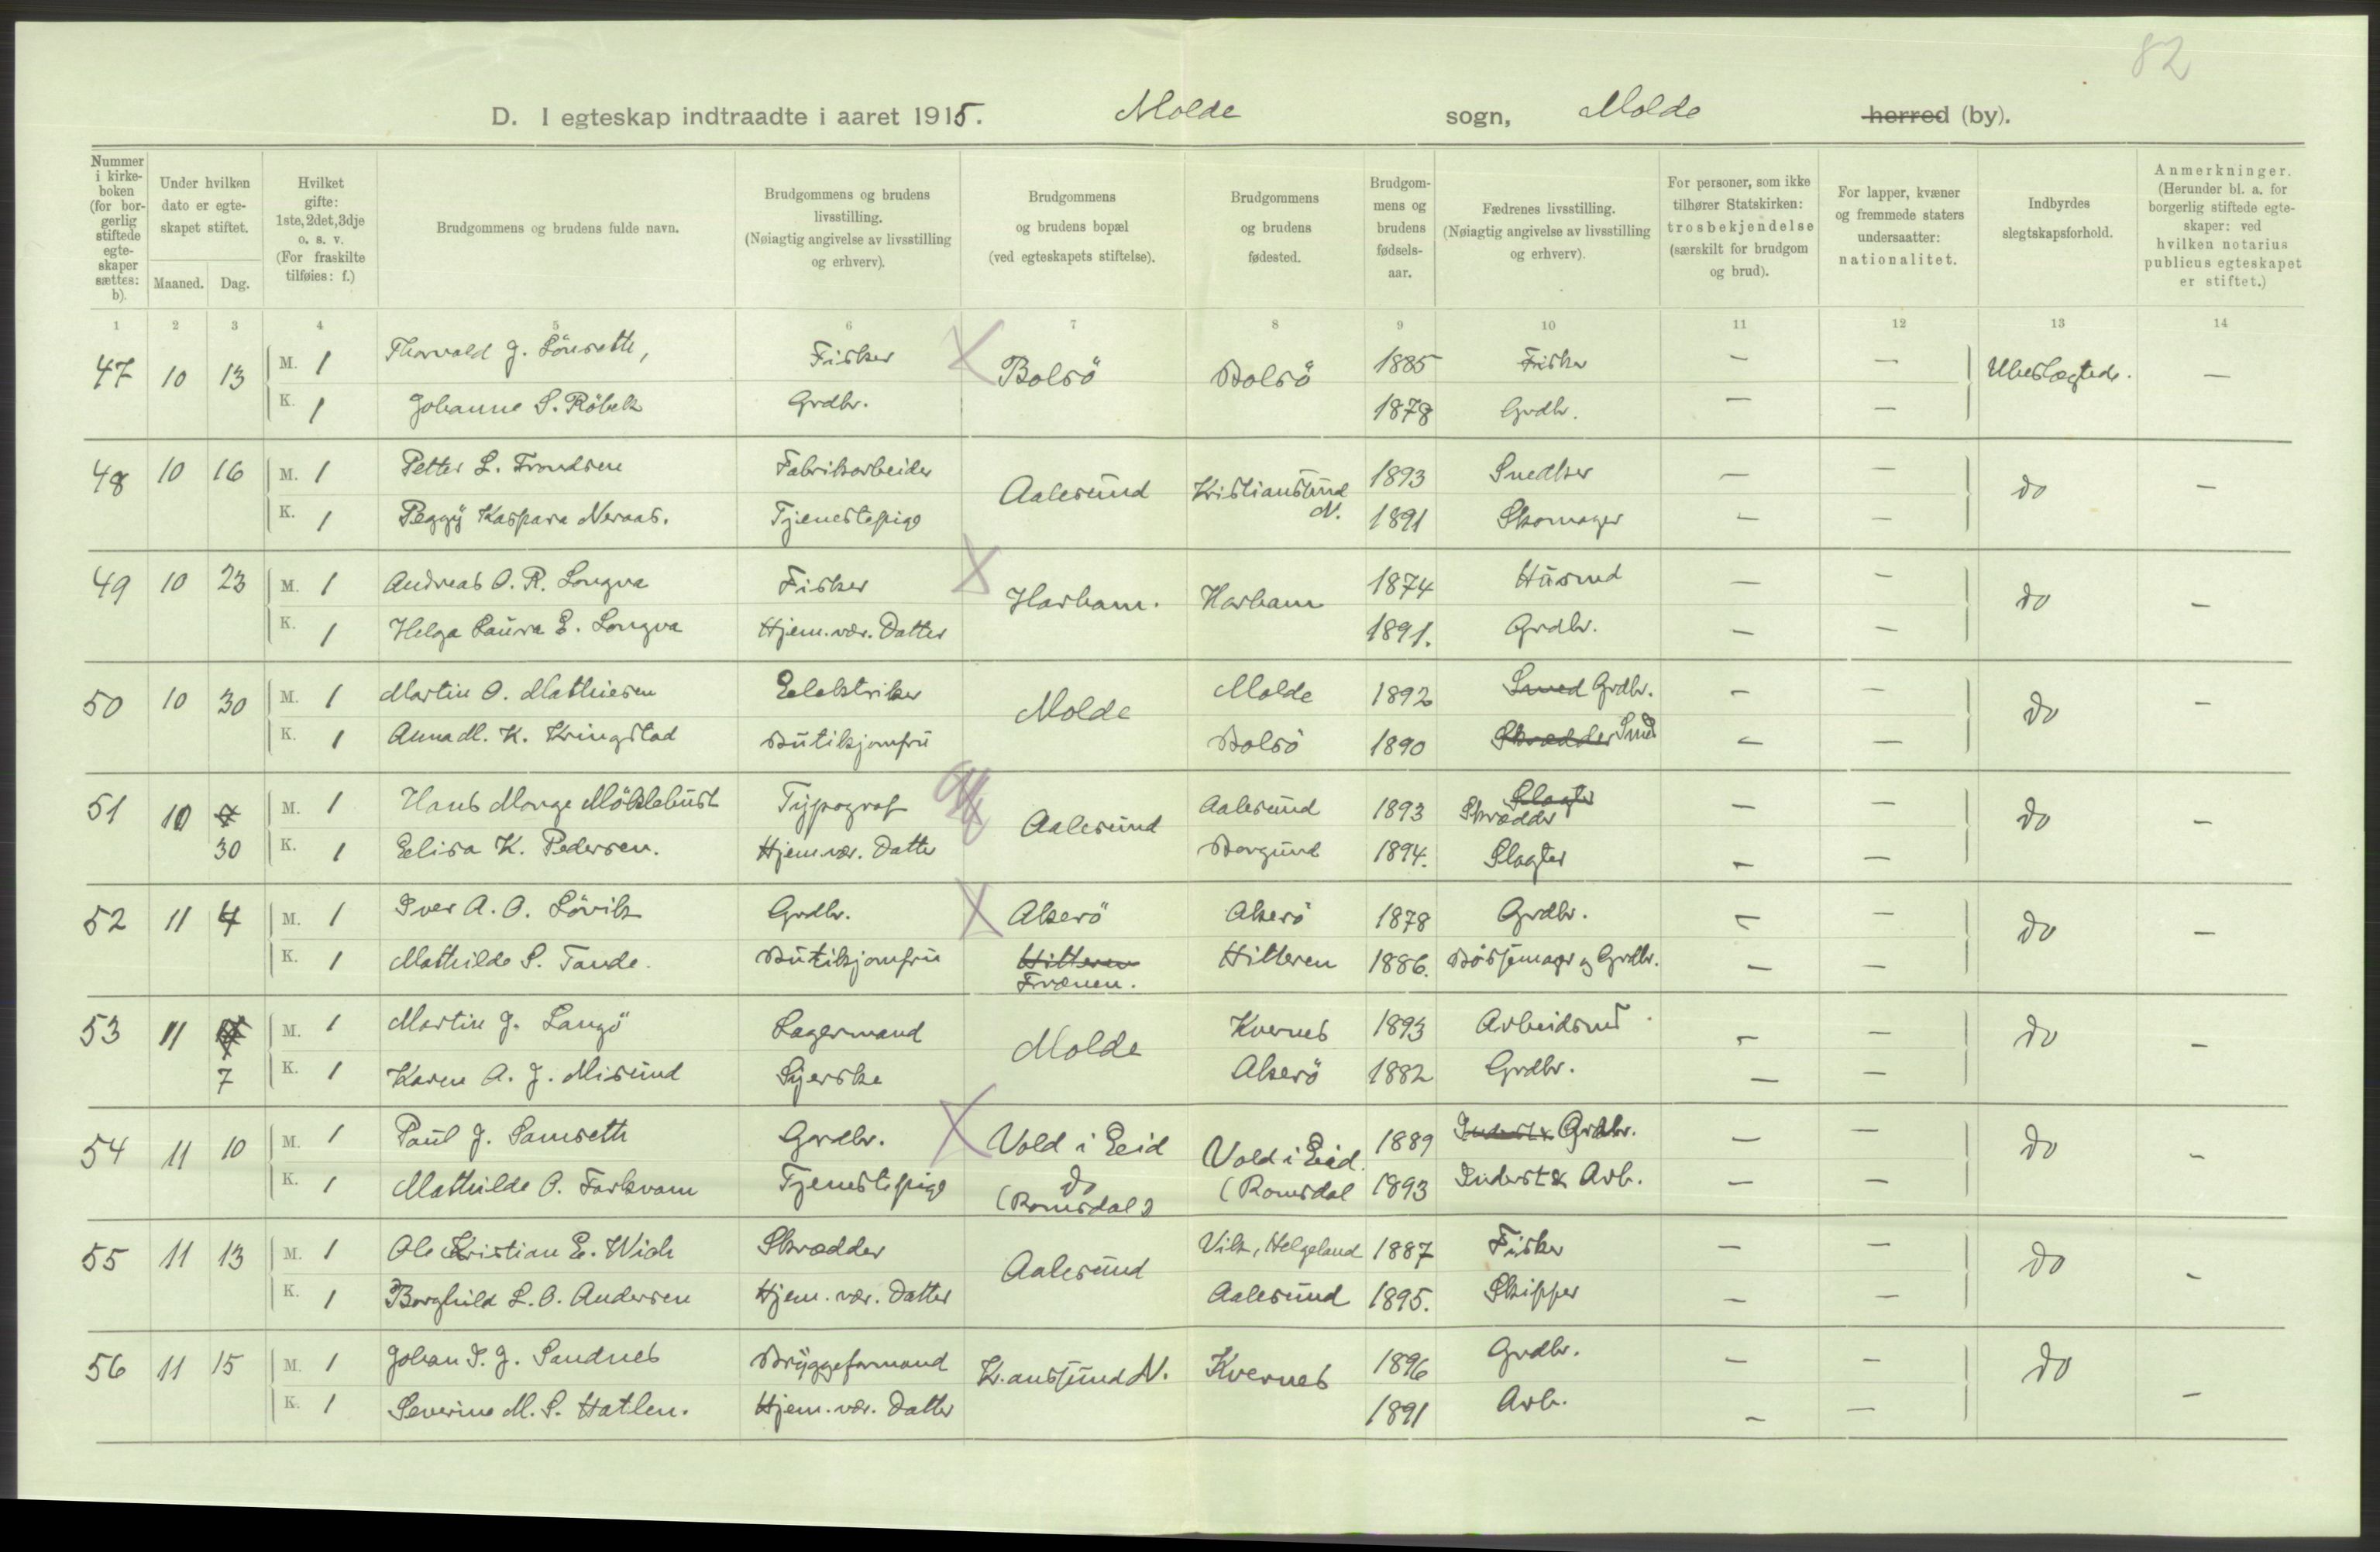 82
D. I egteskap indtraadte i aaret 1915. Molde sogn, Molde herred (by).
Nummer i kirke-boken (for bor-gerlig stiftede egte-skaper sættes: b).
Under hvilken dato er egte-skapet stiftet.
Maaned. Dag.
Hvilket gifte: 1ste, 2det, 3dje o. s. v. (For fraskilte tilføies: f.)
Brudgommens og brudens fulde navn.
Brudgommens og brudens livsstilling. (Nøiagtig angivelse av livsstilling og erhverv).
Brudgommens og brudens bopæl (ved egteskapets stiftelse).
Brudgommens og brudens fødested.
Brudgom-mens og brudens fødsels-aar.
Fædrenes livsstilling. (Nøiagtig angivelse av livsstilling og erhverv).
For personer, som ikke tilhører Statskirken: trosbekjendelse (særskilt for brudgom og brud).
For lapper, kvæner og fremmede staters undersaatter: nationalitet.
Indbyrdes slegtskapsforhold.
Anmerkninger. (Herunder bl. a. for borgerlig stiftede egte-skaper: ved hvilken notarius publicus egteskapet er stiftet.)
1 2 3 4 5 6 7 8 9 10 11 12 13 14
47 10 13 M. 1 Thorvald J. Lönseth, Fisker Bolsö Bolsö 1885 Fisker — — Ubeslægtede. —
K. 1 Johanne S. Röbek Grdbr. 1878 Grdbr. — —
48 10 16 M. 1 Petter L. Frondsen Fabrikarbeider Aalesund Kristiansund N. 1893 Snedker — — do —
K. 1 Peggy Kaspara Neraas. Tjenestepige 1891 Skomager — —
49 10 23 M. 1 Andreas O. R. Longva Fisker Harham. Harham 1874 Husmd — — do —
K. 1 Helga Laura E. Longva Hjem. vær. Datter 1891. Grdbr. — —
50 10 30 M. 1 Martin O. Mathiesen Eelektriker Molde Molde 1892 Smed Grdbr. — — do —
K. 1 Anna M. K. Kringstad Butikjomfru Bolsö 1890 Skrædder Smed — —
51 10 7 M. 1 Hans Monge Möklebust Typograf Aalesund Aalesund 1893 Slagter Skrædder — — do —
30 K. 1 Eelisa K. Pedersen. Hjem. vær. Datter Borgund 1894. Slagter — —
52 11 4 M. 1 Iver A. O. Lövik Grdbr. Akerö Akerö 1878 Grdbr. — — do —
K. 1 Mathilde S. Tande. Butikjomfru Hitteren Frænen. Hitteren 1886. Bösjemager og Grdbr. — —
53 11 M. 1 Martin J. Langö Lagermand Molde Kvernes 1893 Arbeidsmd — — do —
7 K. 1 Karen A. J. Misund Syerske Akerö 1882 Grdbr. — —
54 11 10 M. 1 Paul J. Samseth Gardbr. Vold i Eeid Vold i Eeid. 1889 Inderst & Grdbr. — — do —
K. 1 Mathilde O. Farkvam Tjenestepige do (Romsdal) (Romsdal 1893 Inderst & Arb. — —
55 11 13 M. 1 Ole Kristian E. Wich Skrædder Aalesund Vik, Helgeland 1887 Fisker — — do —
K. 1 Borghild L. O. Andersen Hjem. vær. Datter Aalesund 1895. Skipper — —
56 11 15 M. 1 Johan P. J. Sandnes Bryggeformand Kr.ansund N. Kvernes 1896 Grdbr. — — do —
K. 1 Severine M. S. Hatlen. Hjem. vær. Datter 1891 Arb. — —